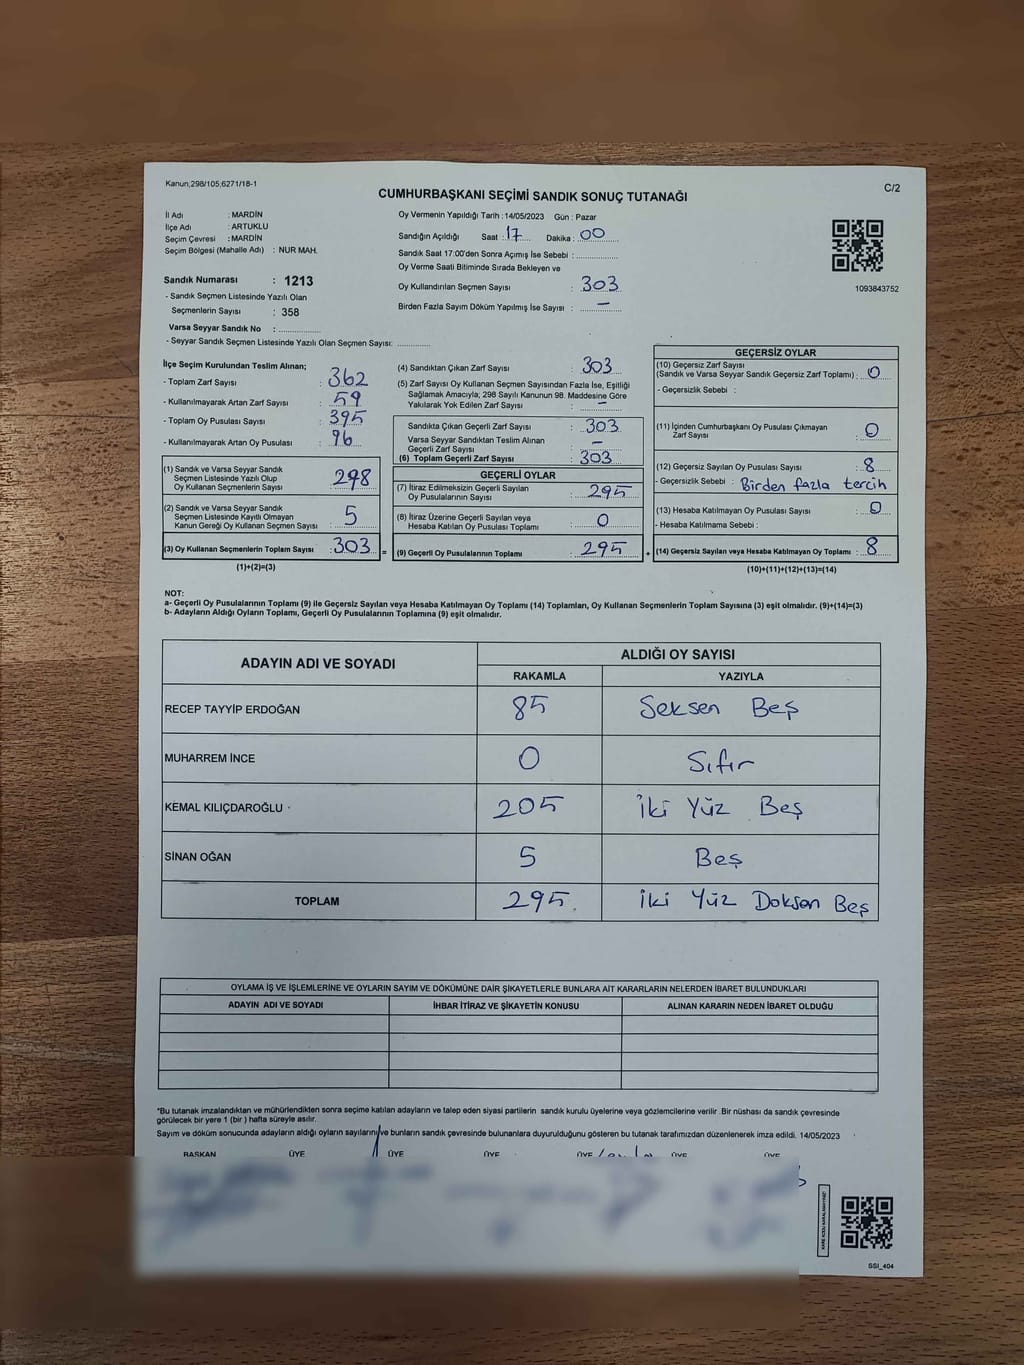 Kanun;298/105;6271/18-1
C/2
CUMHURBAŞKANI SEÇİMİ SANDIK SONUÇ TUTANAĞI
İl Adı : MARDİN
İlçe Adı : ARTUKLU
Seçim Çevresi : MARDİN
Seçim Bölgesi (Mahalle Adı) : NUR MAH.
Sandık Numarası : 1213
- Sandık Seçmen Listesinde Yazılı Olan
Seçmenlerin Sayısı : 358
Varsa Seyyar Sandık No :
- Seyyar Sandık Seçmen Listesinde Yazılı Olan Seçmen Sayısı:
Oy Vermenin Yapıldığı Tarih : 14/05/2023 Gün : Pazar
Sandığın Açıldığı Saat : 17 Dakika : 00
Sandık Saat 17:00'den Sonra Açımış İse Sebebi :
Oy Verme Saati Bitiminde Sırada Bekleyen ve
Oy Kullandırılan Seçmen Sayısı : 303
Birden Fazla Sayım Döküm Yapılmış İse Sayısı : —
1093843752
İlçe Seçim Kurulundan Teslim Alınan;
- Toplam Zarf Sayısı : 362
- Kullanılmayarak Artan Zarf Sayısı : 59
- Toplam Oy Pusulası Sayısı : 395
- Kullanılmayarak Artan Oy Pusulası : 96
(1) Sandık ve Varsa Seyyar Sandık
Seçmen Listesinde Yazılı Olup
Oy Kullanan Seçmenlerin Sayısı : 298
(2) Sandık ve Varsa Seyyar Sandık
Seçmen Listesinde Kayıtlı Olmayan
Kanun Gereği Oy Kullanan Seçmen Sayısı : 5
(3) Oy Kullanan Seçmenlerin Toplam Sayısı : 303 =
(1)+(2)=(3)
(4) Sandıktan Çıkan Zarf Sayısı : 303
(5) Zarf Sayısı Oy Kullanan Seçmen Sayısından Fazla İse, Eşitliği
Sağlamak Amacıyla; 298 Sayılı Kanunun 98. Maddesine Göre
Yakılarak Yok Edilen Zarf Sayısı : —
Sandıkta Çıkan Geçerli Zarf Sayısı : 303
Varsa Seyyar Sandıktan Teslim Alınan
Geçerli Zarf Sayısı : —
(6) Toplam Geçerli Zarf Sayısı : 303
GEÇERLİ OYLAR
(7) İtiraz Edilmeksizin Geçerli Sayılan
Oy Pusulalarının Sayısı : 295
(8) İtiraz Üzerine Geçerli Sayılan veya
Hesaba Katılan Oy Pusulası Toplamı : 0
(9) Geçerli Oy Pusulalarının Toplamı : 295 +
GEÇERSİZ OYLAR
(10) Geçersiz Zarf Sayısı
(Sandık ve Varsa Seyyar Sandık Geçersiz Zarf Toplamı) : 0
- Geçersizlik Sebebi :
(11) İçinden Cumhurbaşkanı Oy Pusulası Çıkmayan
Zarf Sayısı : 0
(12) Geçersiz Sayılan Oy Pusulası Sayısı : 8
- Geçersizlik Sebebi : Birden fazla tercih
(13) Hesaba Katılmayan Oy Pusulası Sayısı : 0
- Hesaba Katılmama Sebebi :
(14) Geçersiz Sayılan veya Hesaba Katılmayan Oy Toplamı : 8
(10)+(11)+(12)+(13)=(14)
NOT:
a- Geçerli Oy Pusulalarının Toplamı (9) ile Geçersiz Sayılan veya Hesaba Katılmayan Oy Toplamı (14) Toplamları, Oy Kullanan Seçmenlerin Toplam Sayısına (3) eşit olmalıdır. (9)+(14)=(3)
b- Adayların Aldığı Oyların Toplamı, Geçerli Oy Pusulalarının Toplamına (9) eşit olmalıdır.
ADAYIN ADI VE SOYADI
ALDIĞI OY SAYISI
RAKAMLA YAZIYLA
RECEP TAYYİP ERDOĞAN 85 Seksen Beş
MUHARREM İNCE 0 Sıfır
KEMAL KILIÇDAROĞLU 205 İki Yüz Beş
SİNAN OĞAN 5 Beş
TOPLAM 295 İki Yüz Doksan Beş
OYLAMA İŞ VE İŞLEMLERİNE VE OYLARIN SAYIM VE DÖKÜMÜNE DAİR ŞİKAYETLERLE BUNLARA AİT KARARLARIN NELERDEN İBARET BULUNDUKLARI
ADAYIN ADI VE SOYADI İHBAR İTİRAZ VE ŞİKAYETİN KONUSU ALINAN KARARIN NEDEN İBARET OLDUĞU
*Bu tutanak imzalandıktan ve mühürlendikten sonra seçime katılan adayların ve talep eden siyasi partilerin sandık kurulu üyelerine veya gözlemcilerine verilir .Bir nüshası da sandık çevresinde
görülecek bir yere 1 (bir ) hafta süreyle asılır.
Sayım ve döküm sonucunda adayların aldığı oyların sayılarını ve bunların sandık çevresinde bulunanlara duyurulduğunu gösteren bu tutanak tarafımızdan düzenlenerek imza edildi. 14/05/2023
BAŞKAN ÜYE ÜYE ÜYE ÜYE ÜYE ÜYE
SSI_404